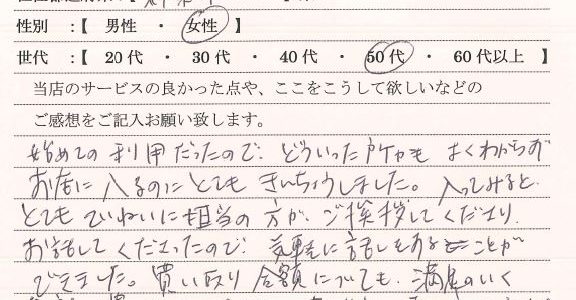 性別 :【 男性 ・ 女性 】
世代 :【 20代 ・ 30代 ・ 40代 ・ 50代 ・ 60代以上 】
当店のサービスの良かった点や、ここをこうして欲しいなどの
ご感想をご記入お願い致します。
始めての利用だったので、どういった所かも よくわからず
お店に入るのにとてもきんちょうしました。入ってみると、
とてもていねいに担当の方が、ご挨拶してくださり、
お話してくださったので、気軽に話しをすることが
できました。買い取り金額についても、満足のいく